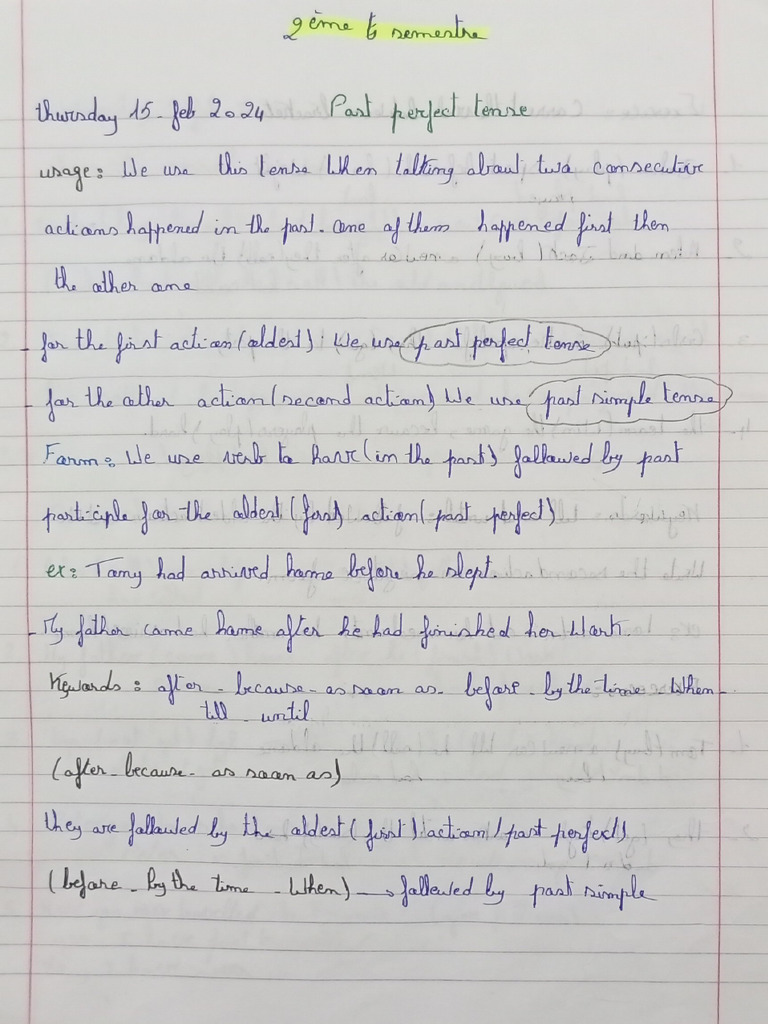 2ème semestre
thursday 15 - feb 2024 Past perfect tense
usage: We use this tense When talking about two consecutive
actions happened in the past. one of them happened first then
the other one
- for the first action (oldest): We use past perfect tense
- for the other action (second action) We use past simple tense
Form: We use verb to have (in the past) followed by past
participle for the oldest (first) action (past perfect)
ex: Tomy had arrived home before he slept.
- My father came home after he had finished her Work.
Keywords: after - because - as soon as - before - by the time - When -
till - until
(after - because - as soon as)
they are followed by the oldest (first) action (past perfect)
(before - by the time - When) → followed by past simple